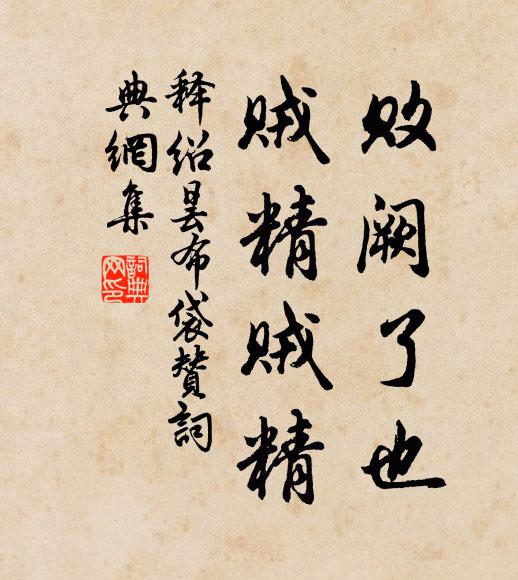 败阙了也
贼精贼精
释绍昙布袋赞词
典網集
詞典網印